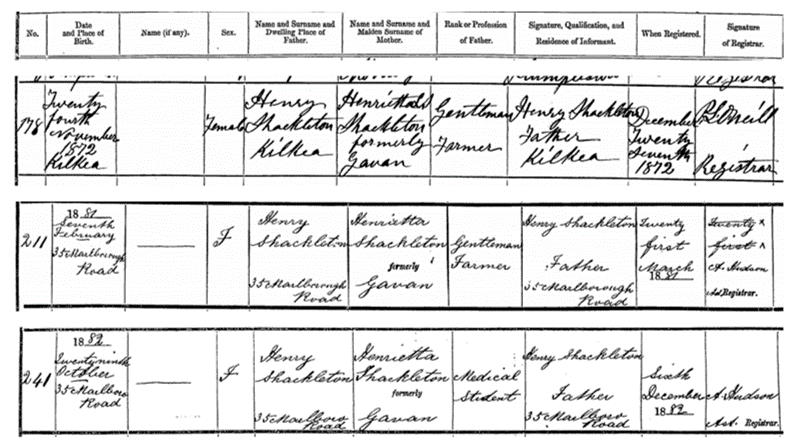 No.
Date
and Place of
Birth.
Name (if any).
Sex.
Name and Surname and
Dwelling Place of
Father.
Name and Surname and
Maiden Surname of
Mother.
Rank or Profession
of Father.
Signature, Qualification, and
Residence of Informant.
When Registered.
Signature
of Registrar.
Registrar
178
Twenty
fourth
November
1872
Kilkea
Female
Henry
Shackleton
Kilkea
Shackleton
formerly
Gavan
Gentleman
Farmer
Henry Shackleton
Father
Kilkea
December
Twenty
Seventh
1872
Registrar
211
1881
Seventh
February
35 Marlborough
Road
F
Henry
Shackleton
35 Marlborough
Road
Henrietta
Shackleton
formerly
Gavan
Gentleman
Farmer
Henry Shackleton
Father
35 Marlborough
Road
Twenty
first
March
1881
Twenty x
first x
A. Hudson
Ast. Registrar.
241
1882
Twenty ninth
October
35 Marlboro
Road
F
Henry
Shackleton
35 Marlboro
Road
Henrietta
Shackleton
formerly
Gavan
Medical
Student
Henry Shackleton
Father
35 Marlboro
Road
Sixth
December
1882
A. Hudson
Ast. Registrar.